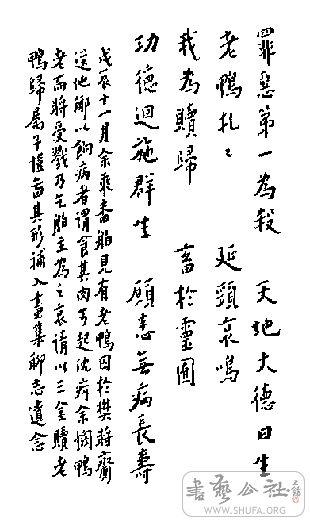 罪惡第一為殺 天地大德曰生
老鴨札々 延頸哀鳴
我為贖歸 畜於靈囿
功德迴施群生 願悉無病長壽
戊辰十一月余乘番舶見有老鴨囚於樊將齎
送他鄉以餉病者謂食其肉可起沈疴余憫鴨
老而將受戮乃乞舶主為之哀請以三金贖老
鴨歸屬子愷圖其形補入畫集聊志遺念
書藝公社
WWW.SHUFA.ORG